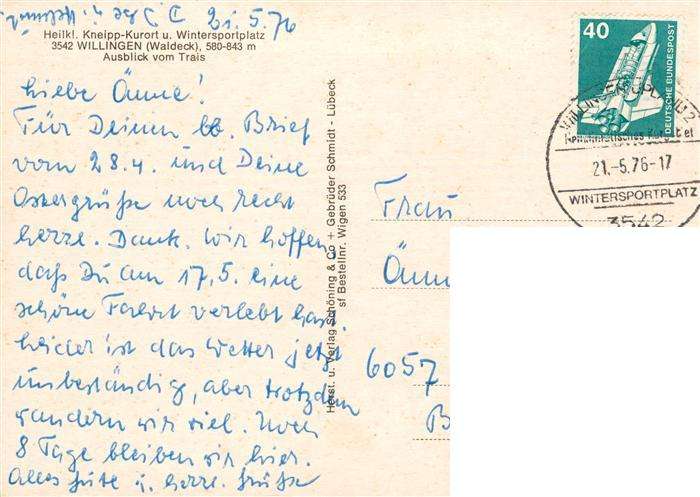 21.5.76
Heilkl. Kneipp-Kurort u. Wintersportplatz
3542 WILLINGEN (Waldeck), 580-843 m
Ausblick vom Trais
Liebe Änne!
Für Deinen lb. Brief
vom 28.4. und Deine
Ostergrüße noch recht
herzl. Dank. Wir hoffen,
daß Du am 17.5. eine
schöne Fahrt verlebt hast.
Leider ist das Wetter jetzt
unbeständig, aber trotzdem
wandern wir viel. Noch
8 Tage bleiben wir hier.
Alles Gute u. herzl. Grüße
Herst. u. Verlag Schöning & Co + Gebrüder Schmidt - Lübeck
sf Bestellnr. Wigen 533
40
DEUTSCHE BUNDESPOST
21.-5.76-17
WINTERSPORTPLATZ
3542
Frau
Änne
6057
B